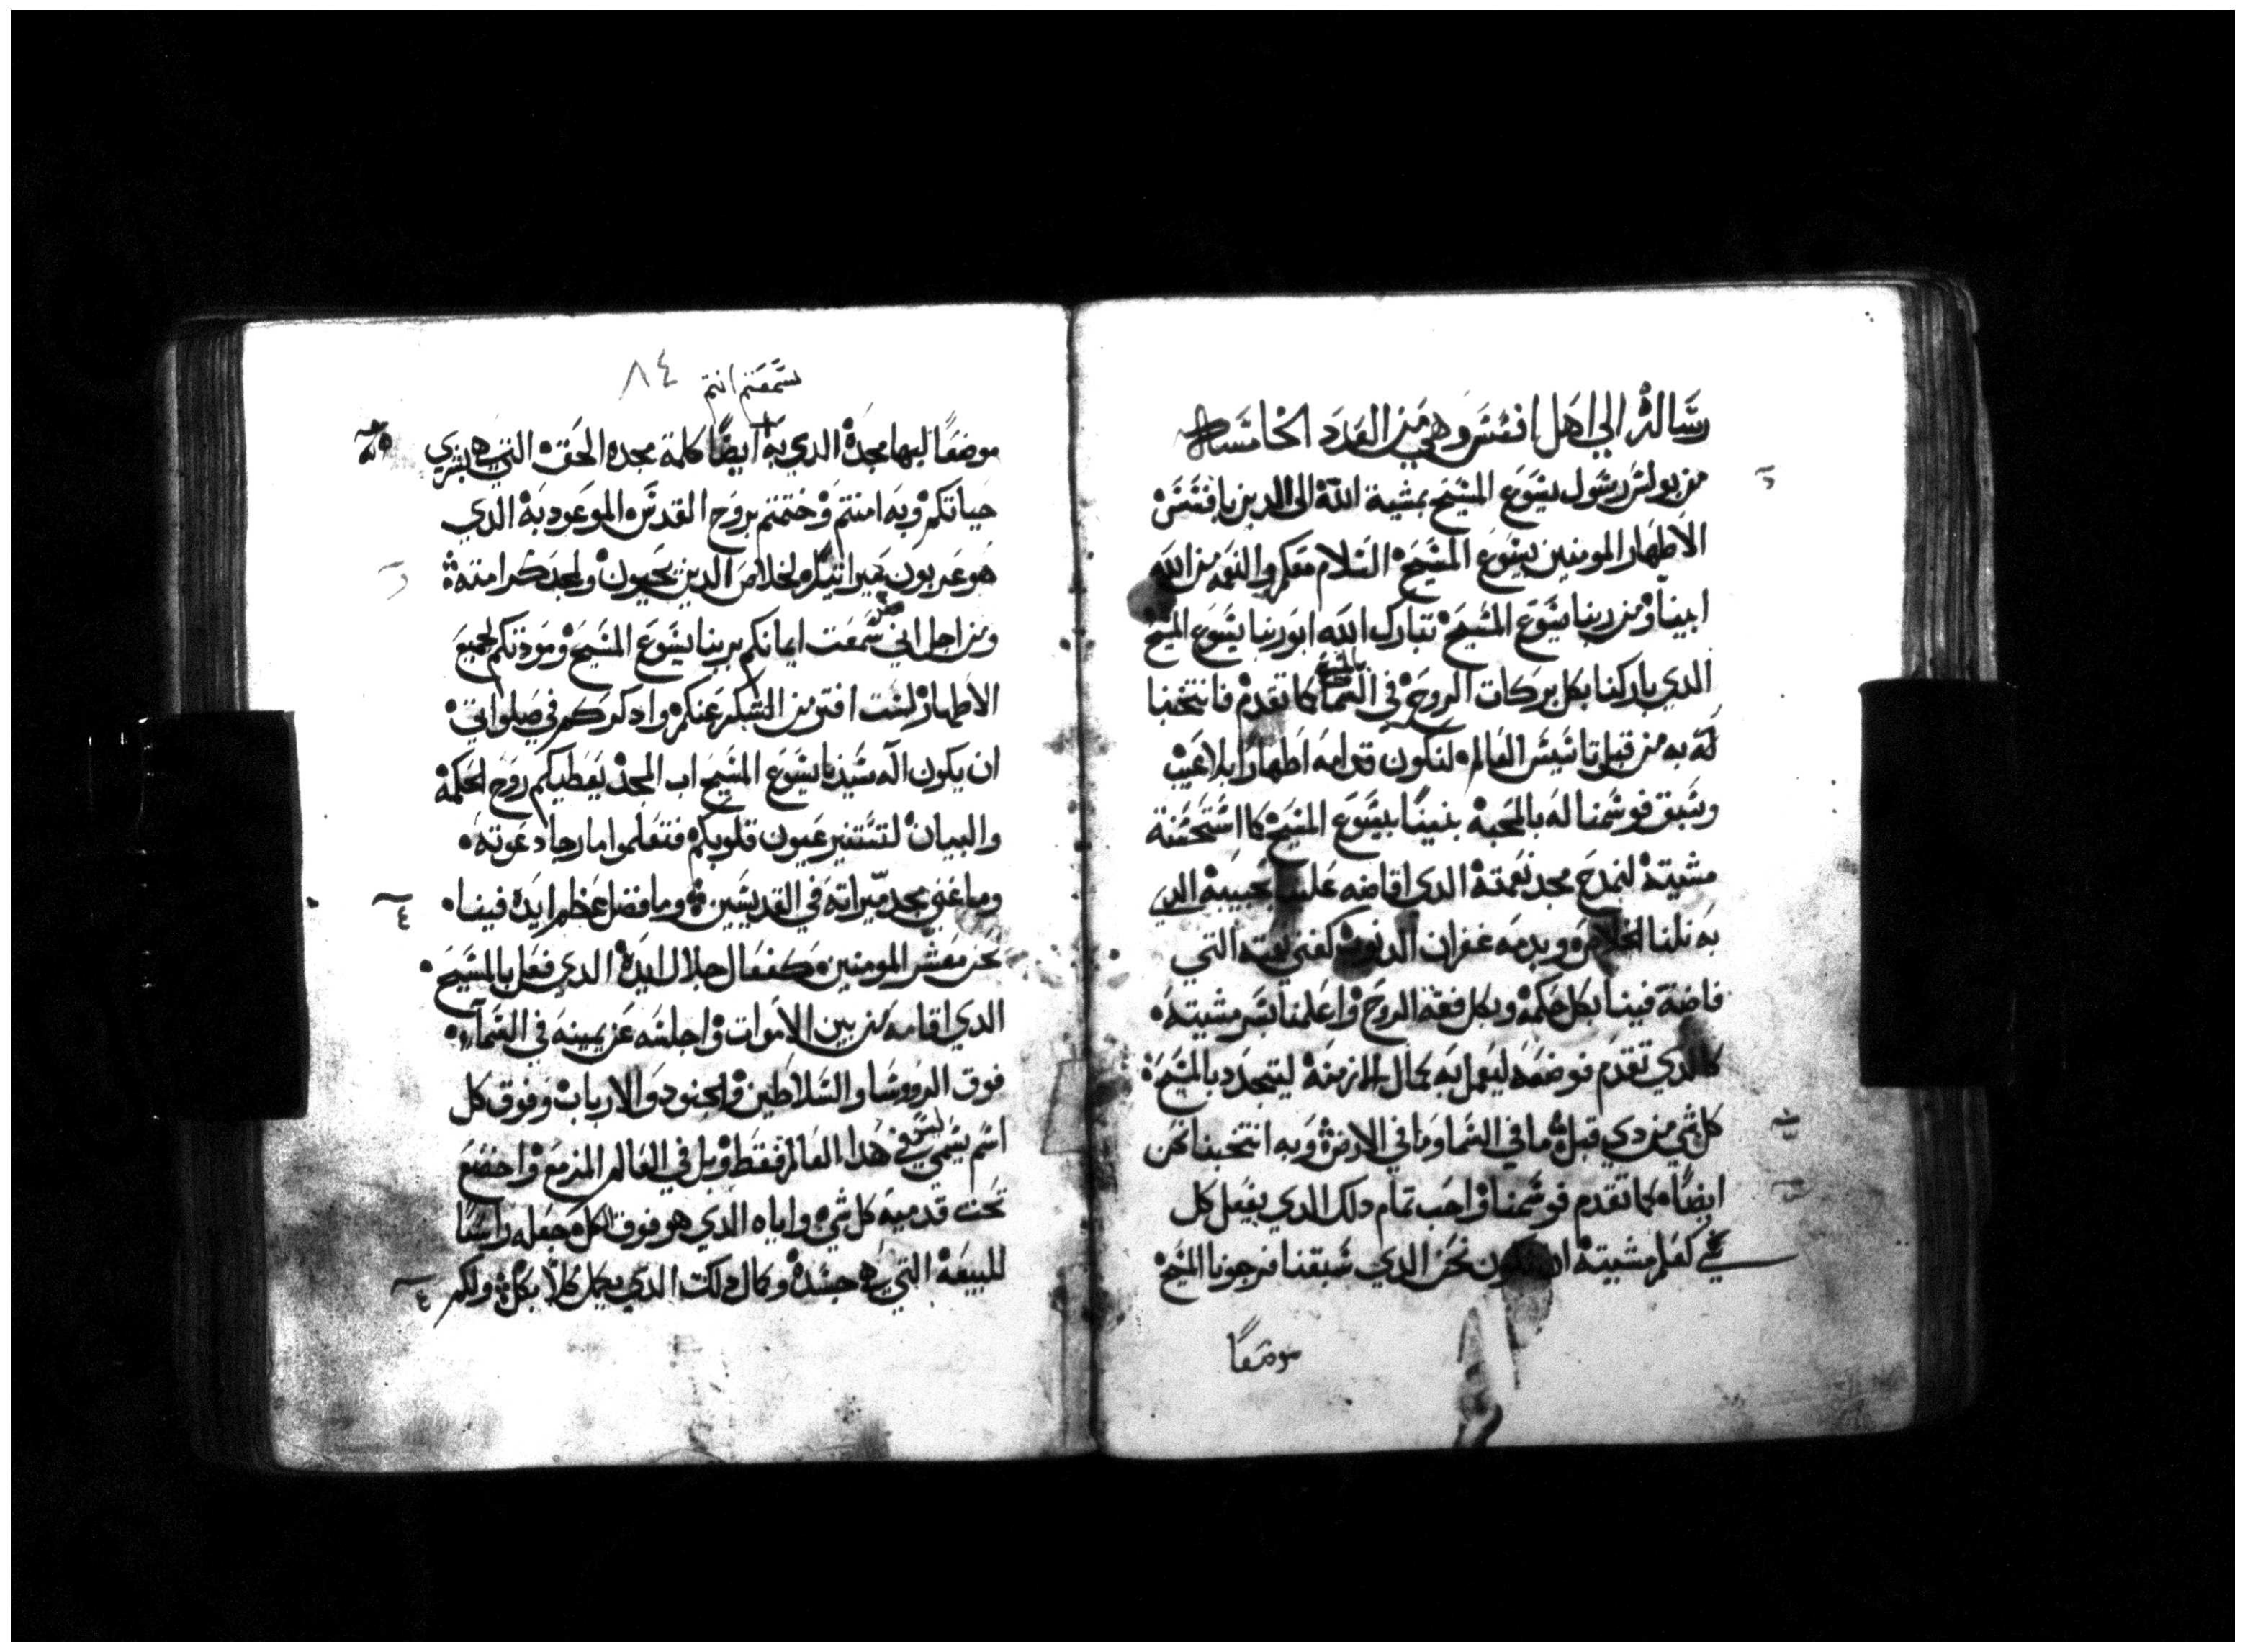 رسالة الي اهل افسس وهي من العدد الخامسة
من بولس رسول يسوع المسيح بمشية الله الى الدين بافسس
الاطهار المومنين بيسوع المسيح السلام معكم والنعمه من الله
ابينا ومن ربنا يسوع المسيح تبارك الله ابو ربنا يسوع المسيح
الدي باركنا بكل بركات الروح في السما بالمسيح كما تقدم فانتخبنا
له به من قبل تاسيس العالم لنكون قدامه اطهارا بلا عيب
وسبق فوسمنا له بالمحبة بنينا بيسوع المسيح كما استحسنة
مشيتة لنمدح مجد نعمتة الدي افاضه علينا بحبيبة الدي
به نلنا الخلاص وبدمه غفران الدنوب كغني نعمته التي
فاضة فينا بكل حكمة وبكل فقه الروح واعلمنا بسر مشيته
كالدي تقدم فوضعه ليعمل به كمال الازمنة ليتجدد بالمسيح
كل شي من دي قبل ما في السما وما في الارض وبه انتخبنا نحن
ايضا كما تقدم فوسمنا واحب تمام دلك الدي يفعل كل
شي كعلم مشيتة ان نكون نحن الدي سبقنا فرجونا المسيح
موضعا
٨٤
سمعتم انتم
موضعا لبها مجدة الدي به ايضا كلمة مجده الحق التي هي بشري
حياتكم وبه امنتم وختمتم بروح القدس الموعود به الدي
هو عربون ميراتنا لخلاص الدين يحيون ولمجد كرامته
ومن اجل اني سمعت ايمانكم بربنا يسوع المسيح ومودتكم لجميع
الاطهار لست افتر من الشكر عنكم وادكركم في صلواتي
ان يكون اله سيدنا يسوع المسيح اب المجد يعطيكم روح الحكمة
والبيان لتستنير عيون قلوبكم فتعلموا ما رجا دعوته
وما غني مجد ميراته في القديسين وما فضل عظم ايده فينا
نحن معشر المومنين كفعال جلال ايدة الدي فعل بالمسيح
الدي اقامه من بين الاموات واجلسه عن يمينه في السماء
فوق الرووسا والسلاطين والجنود والارباب وفوق كل
اسم يسمي ليس في هدا العالم فقط بل في العالم المزمع واخضع
تحت قدميه كل شي واياه الدي هو فوق الكل جعله راسا
للبيعة التي هي جسدة وكمال دلك الدي يكمل كلا بكل ولكم